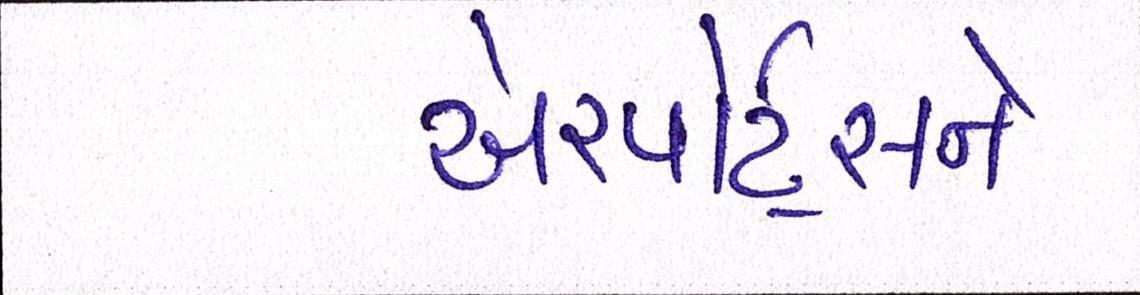 એરપોર્ટ્સને